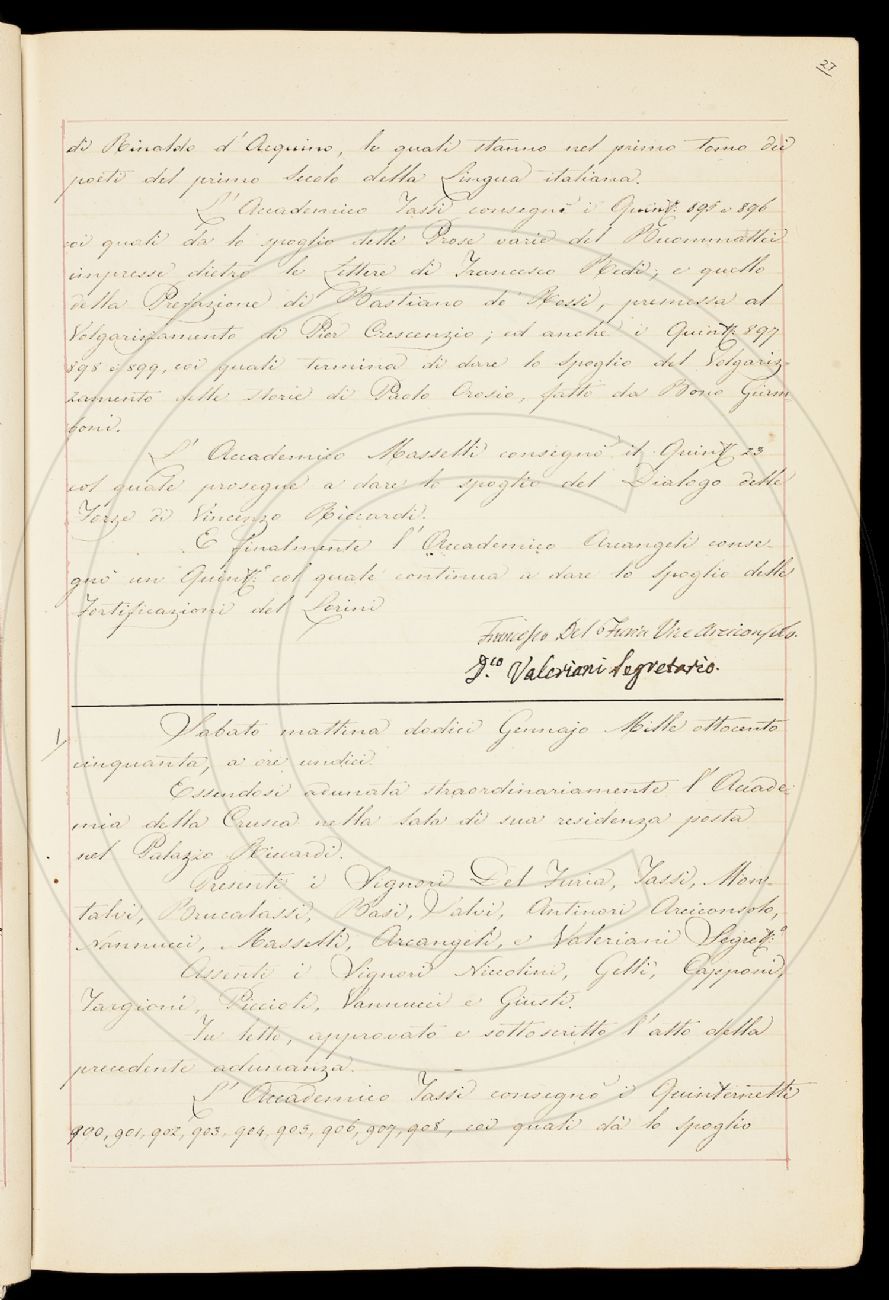 27
di Rinaldo d'Acquino, le quali stanno nel primo Tomo dei
poeti del primo Secolo della Lingua italiana.
L'Accademico Tassi consegnò i Quint.ⁱ 895 e 896
coi quali dà lo spoglio delle Prose varie del Buommattei
impresse dietro le Lettere di Francesco Redi; e quello
della Prefazione di Bastiano de' Rossi, premessa al
Volgarizzamento di Pier Crescenzio; ed anche i Quint.ⁱ 897
898 e 899, coi quali termina di dare lo spoglio del Volgariz-
zamento delle storie di Paolo Orosio, fatto da Bono Giam-
boni.
L'Accademico Masselli consegnò il Quint.º 23
col quale prosegue a dare lo spoglio del Dialogo delle
Forze di Vincenzo Riccardi.
E finalmente l'Accademico Arcangeli conse-
gnò un Quint.º col quale continua a dare lo spoglio delle
Fortificazioni del Lorini
Francesco Del Furia Vice Arciconsolo.
D.co Valeriani Segretario.
1/
Sabato mattina dodici Gennajo Mille ottocento
cinquanta, a ore undici.
Essendosi adunata straordinariamente l'Accade-
mia della Crusca nella Sala di sua residenza posta
nel Palazio Riccardi.
Presenti i Signori Del Furia, Tassi, Mon-
talvi, Brucalassi, Basi, Salvi, Antinori Arciconsolo,
Nannucci, Masselli, Arcangeli, e Valeriani Segret.º
Assenti i Signori Niccolini, Gelli, Capponi,
Targioni, Piccioli, Vannucci e Giusti.
Fu letto, approvato e sottoscritto l'atto della
precedente adunanza.
L'Accademico Tassi consegnò i Quinternetti
900, 901, 902, 903, 904, 905, 906, 907, 908, coi quali dà lo spoglio